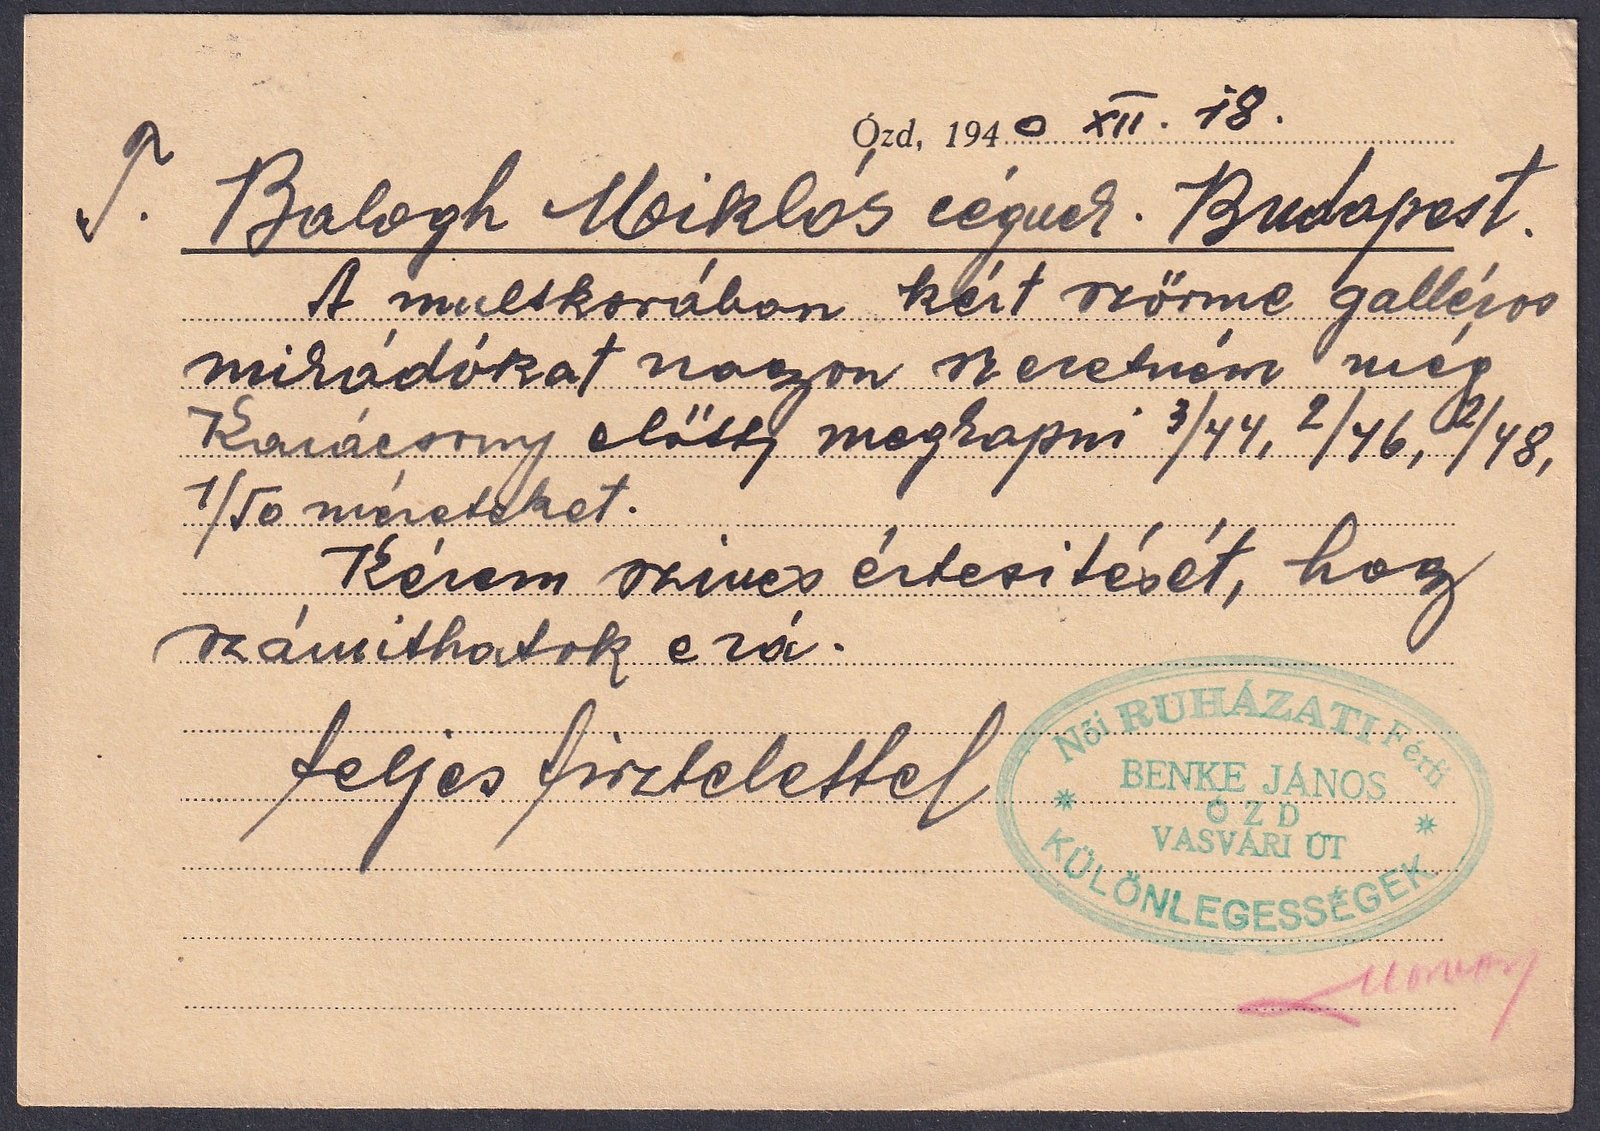 Ózd, 1940 XII. 18.
T. Balogh Miklós cégnek. Budapest.
A multkorában kért szőrme galléros
mikádókat nagyon szeretném még
Karácsony előtt megkapni 3/44, 2/46, 2/48,
1/50 méreteket.
Kérem szives értesitését, hogy
számithatok e rá.
teljes tisztelettel
Női RUHÁZATI Férfi
BENKE JÁNOS
ÓZD
VASVÁRI ÚT
KÜLÖNLEGESSÉGEK